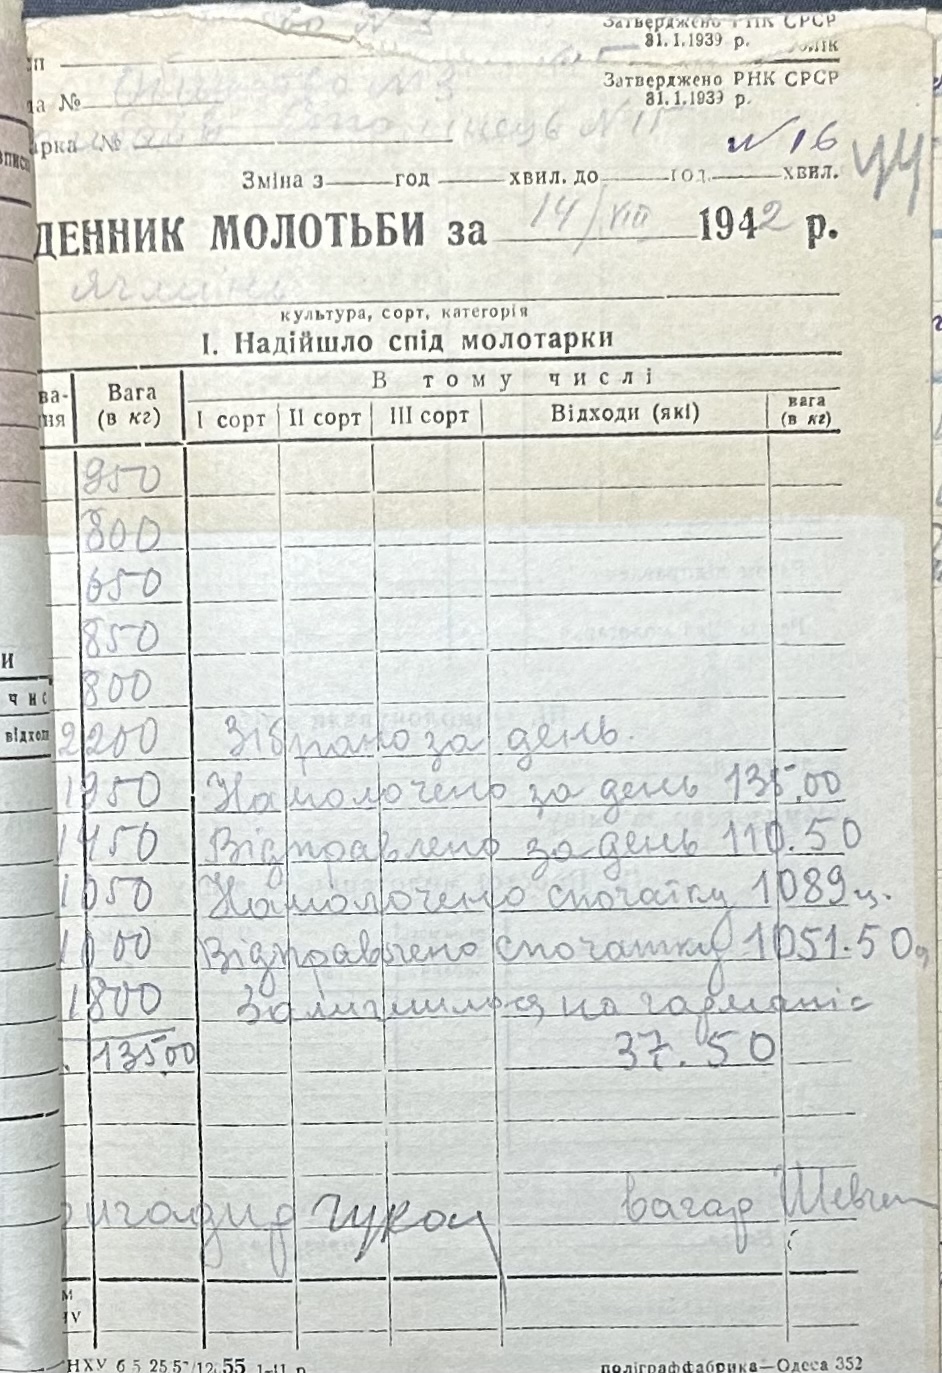 Затверджено РНК СРСР
31.1.1939 р.
Затверджено РНК СРСР
31.1.1939 р.
на №
арка №
№ 16
44
Зміна з год хвил. до год. хвил.
ДЕННИК МОЛОТЬБИ за 14/VIII 1942 р.
культура, сорт, категорія
І. Надійшло спід молотарки
ва-
ня
Вага
(в кг)
В тому числі
І сорт ІІ сорт ІІІ сорт Відходи (які) вага
(в кг)
950
800
650
850
800
2200 Зібрано за день.
1950 Намолочено за день 135,00
1450 Відправлено за день 110.50
1050 Намолочено спочатку 1089 ц.
1000 Відправлено спочатку 1051.50
1800 Залишилося на гармані
13500 37.50
Вагар Шевчен
И
чис
відход
поліграффабрика—Одеса 352